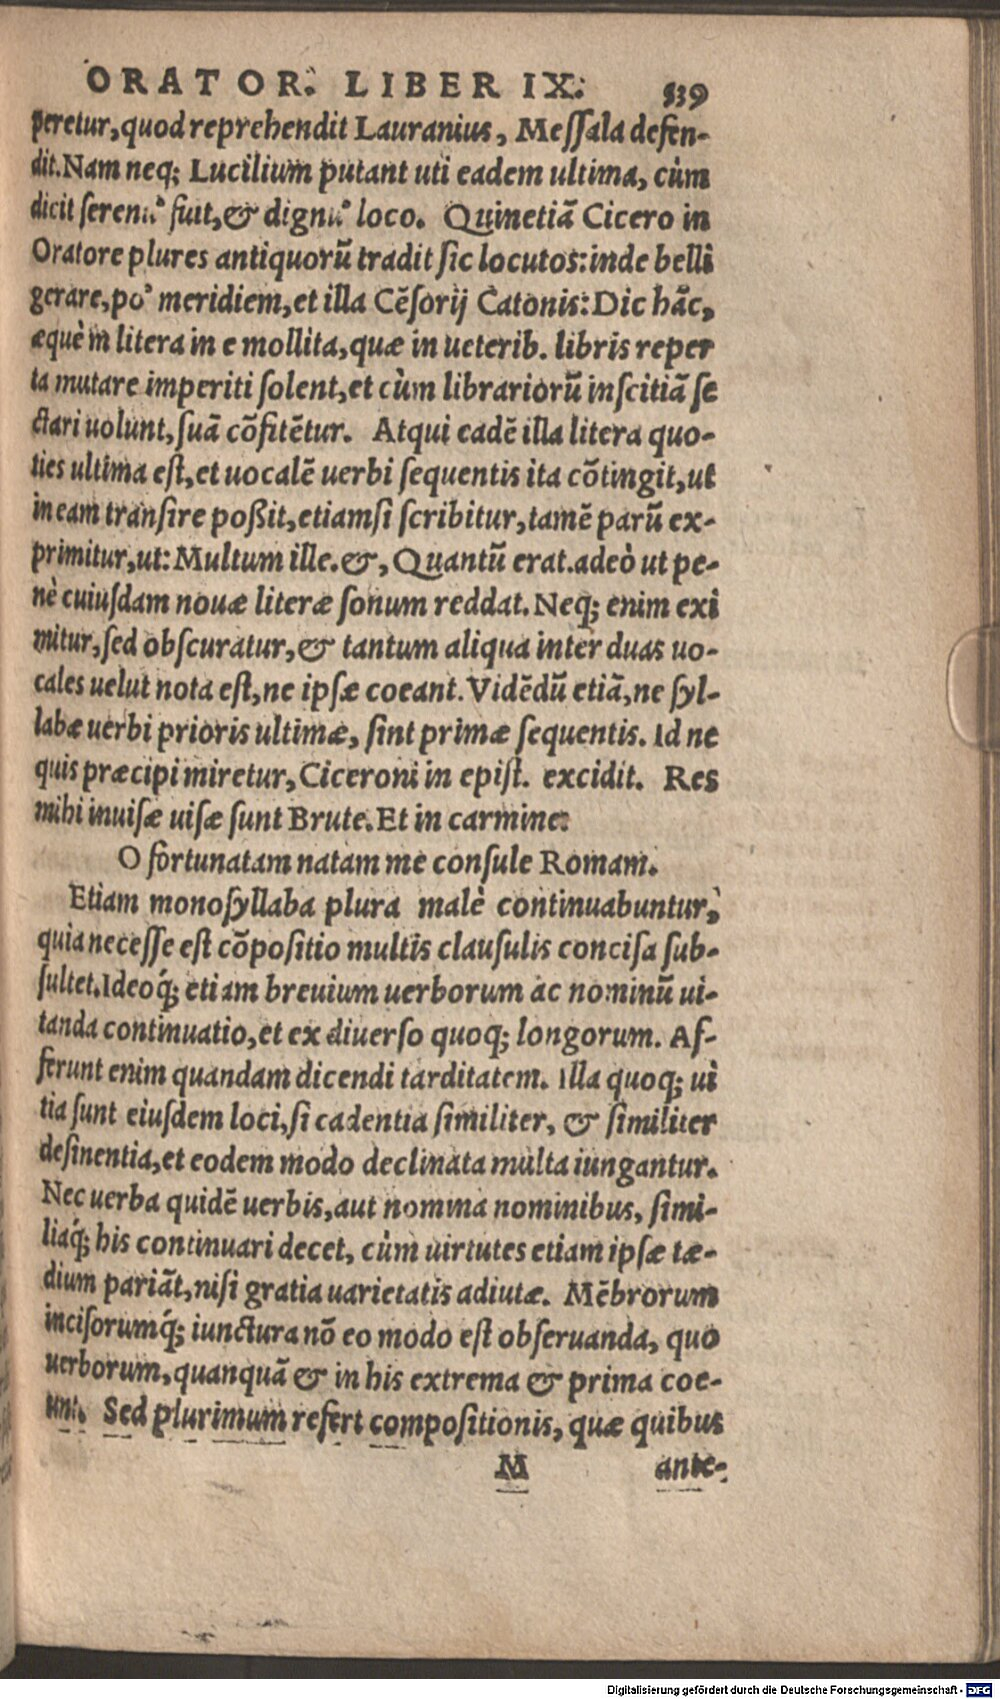 ORATOR. LIBER IX. 539
peretur, quod reprehendit Lauranius, Messala defen-
dit. Nam neq; Lucilium putant uti eadem ultima, cùm
dicit serenu' fuit, & dignu' loco. Quinetiā Cicero in
Oratore plures antiquorū tradit sic locutos: inde belli
gerare, po' meridiem, et illa Cēsorij Catonis: Dic hāc,
æquè m litera in e mollita, quæ in ueterib. libris reper
ta mutare imperiti solent, et cùm librariorū inscitiā se
ctari uolunt, suā cōfitētur. Atqui eadē illa litera quo-
ties ultima est, et uocalē uerbi sequentis ita cōtingit, ut
in eam transire poßit, etiamsi scribitur, tamē parū ex-
primitur, ut: Multum ille. &, Quantū erat. adeò ut pe-
nè cuiusdam nouæ literæ sonum reddat. Neq; enim exi
mitur, sed obscuratur, & tantum aliqua inter duas uo-
cales uelut nota est, ne ipsæ coeant. Vidēdū etiā, ne syl-
labæ uerbi prioris ultimæ, sint primæ sequentis. Id ne
quis præcipi miretur, Ciceroni in epist. excidit. Res
mihi inuisæ uisæ sunt Brute. Et in carmine:
O fortunatam natam me consule Romam.
Etiam monosyllaba plura malè continuabuntur,
quia necesse est cōpositio multis clausulis concisa sub-
sultet. Ideoq́; etiam breuium uerborum ac nominū ui-
tanda continuatio, et ex diuerso quoq; longorum. Af-
ferunt enim quandam dicendi tarditatem. Illa quoq; ui
tia sunt eiusdem loci, si cadentia similiter, & similiter
desinentia, et eodem modo declinata multa iungantur.
Nec uerba quidē uerbis, aut nomina nominibus, simi-
liaq́; his continuari decet, cùm uirtutes etiam ipsæ tæ-
dium pariāt, nisi gratia uarietatis adiutæ. Mēbrorum
incisorumq́; iunctura nō eo modo est obseruanda, quo
uerborum, quanquā & in his extrema & prima coe-
unt. Sed plurimum refert compositionis, quæ quibus
M ante-
Digitalisierung gefördert durch die Deutsche Forschungsgemeinschaft - DFG